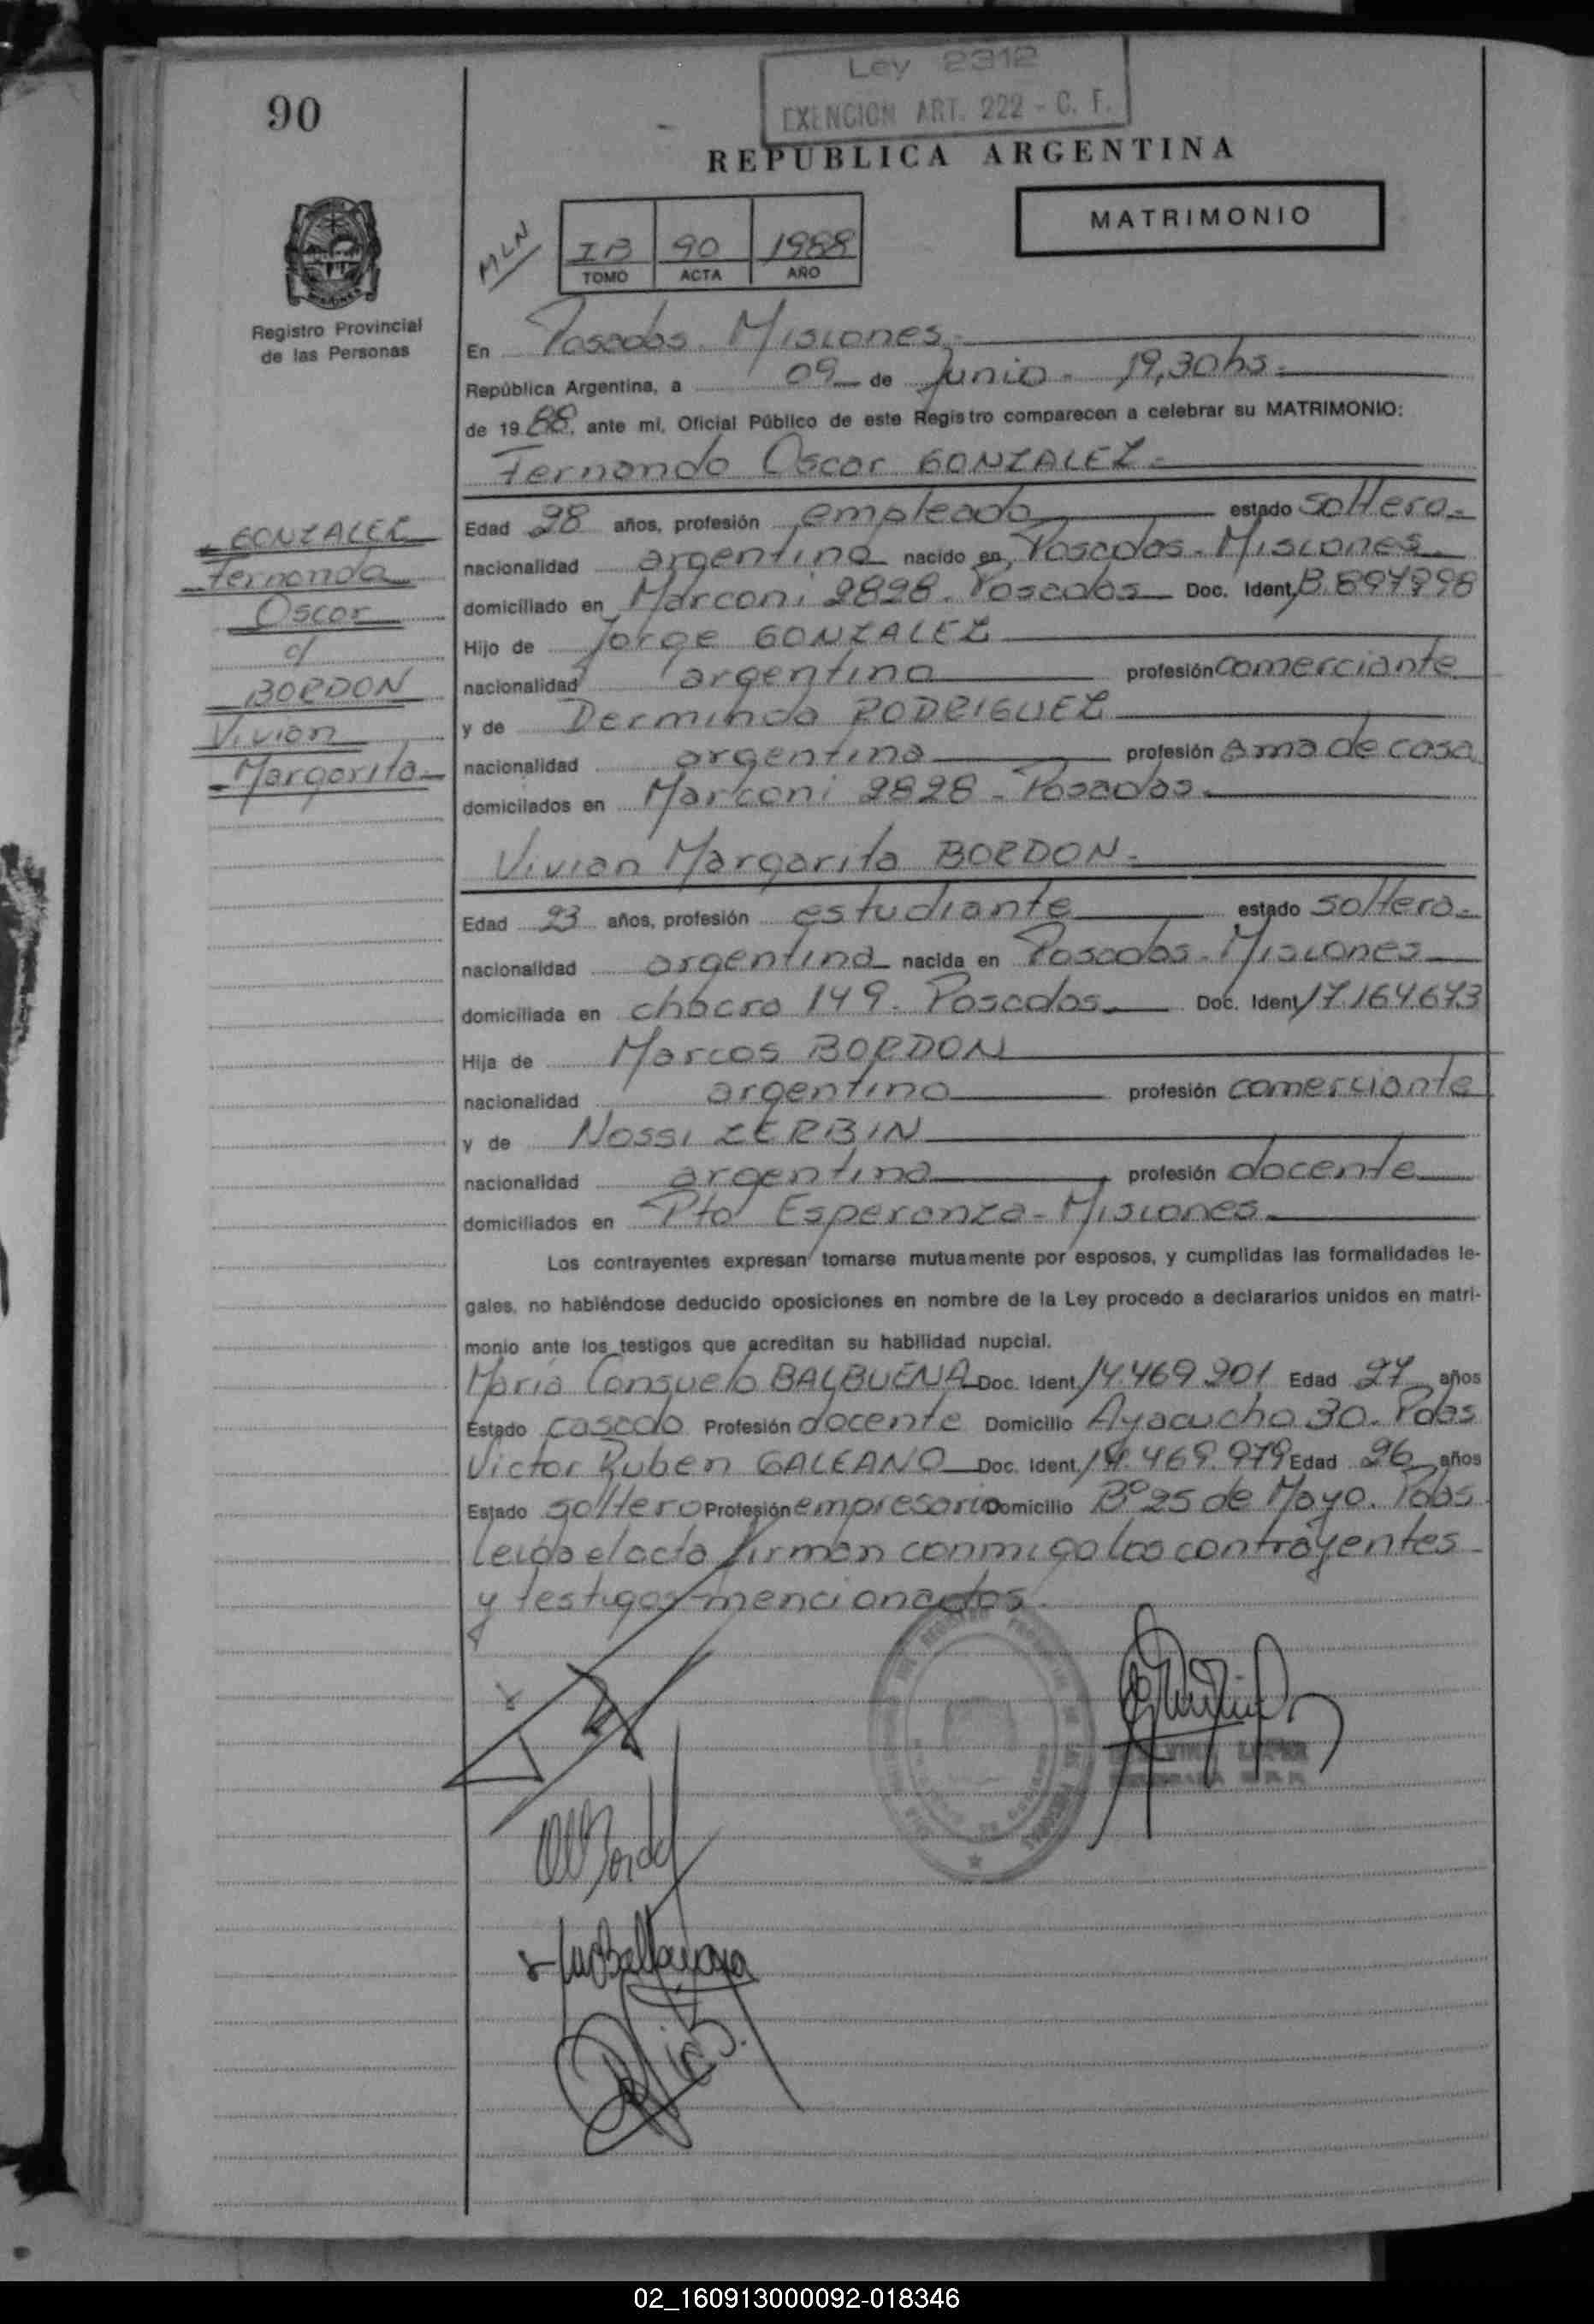 Ley 2312
EXENCION ART. 222 - C. F.
90
REPUBLICA ARGENTINA
MATRIMONIO
MLN
IB 90 1988
TOMO ACTA AÑO
Registro Provincial
de las Personas
En Posadas. Misiones.-
República Argentina, a 09 de Junio - 19,30hs.-
de 1988, ante mi, Oficial Público de este Registro comparecen a celebrar su MATRIMONIO:
Fernando Oscar GONZALEZ.-
GONZALEZ
Fernando
Oscar
c/
BORDON
Vivian
Margarita.-
Edad 28 años, profesión empleado estado soltero.-
nacionalidad argentina nacido en Posadas - Misiones.
domiciliado en Marconi 2828. Posadas Doc. Ident.
Hijo de Jorge GONZALEZ
nacionalidad argentina profesión comerciante
y de Derminda RODRIGUEZ
nacionalidad argentina profesión ama de casa
domicilados en Marconi 2828 - Posadas.
Vivian Margarita BORDON.-
Edad 23 años, profesión estudiante estado soltera.-
nacionalidad argentina nacida en Posadas - Misiones
domiciliada en chacra 149. Posadas Doc. Ident. 17.164.673
Hija de Marcos BORDON
nacionalidad argentino profesión comerciante
y de Nossi ZERBIN
nacionalidad argentina profesión docente
domiciliados en Pto Esperanza - Misiones.
Los contrayentes expresan tomarse mutuamente por esposos, y cumplidas las formalidades le-
gales, no habiéndose deducido oposiciones en nombre de la Ley procedo a declararlos unidos en matri-
monio ante los testigos que acreditan su habilidad nupcial.
Maria Consuelo BALBUENA Doc. Ident. 14.469.201 Edad 27 años
Estado casada Profesión docente Domicilio Ayacucho 30. Pdas
Victor Ruben GALEANO Doc. Ident. 14.469.979 Edad 26 años
Estado soltero Profesión empresario Domicilio Bº 25 de Mayo. Pdas
Leida el acta firman conmigo los contrayentes
y testigos mencionados.
02_160913000092-018346